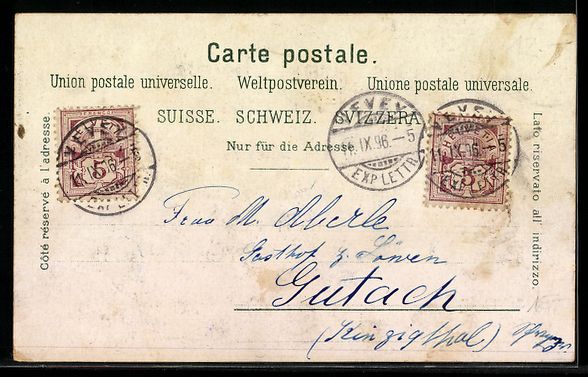 Carte postale.
Union postale universelle. Weltpostverein. Unione postale universale.
SUISSE. SCHWEIZ. SVIZZERA
Nur für die Adresse.
Côté réservé à l'adresse.
Lato riservato all indirizzo.
VEVEY
11.IX.96.—5
EXP. LETTR.
Frau M. Aberle
Gasthof z. Löwen
Gutach
(Kinzigthal)